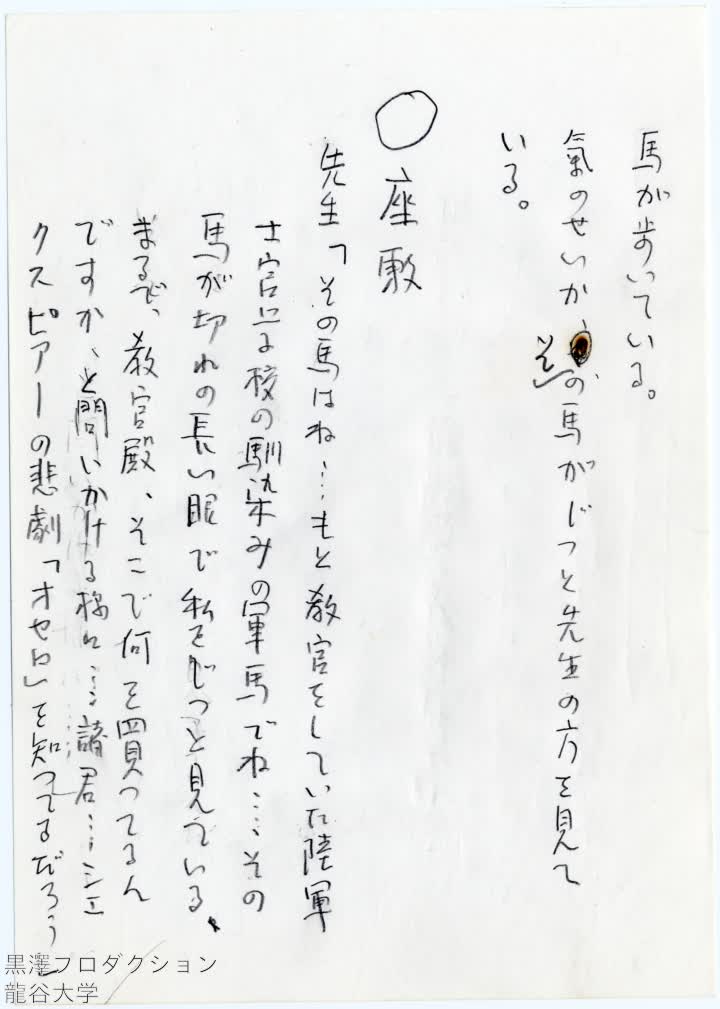 馬が歩いている。
氣のせいか、その馬がじつと先生の方を見て
いる。
○座敷
先生「その馬はね…もと教官をしていた陸軍
士官学校の馴染みの軍馬でね…その
馬が切れの長い眼で私をじっと見ている、
まるで、教官殿、そこで何を買つてるん
ですか、と問いかける様に…諸君…シェ
クスピアーの悲劇「オセロ」を知つてるだろう」
黒澤プロダクション
龍谷大学